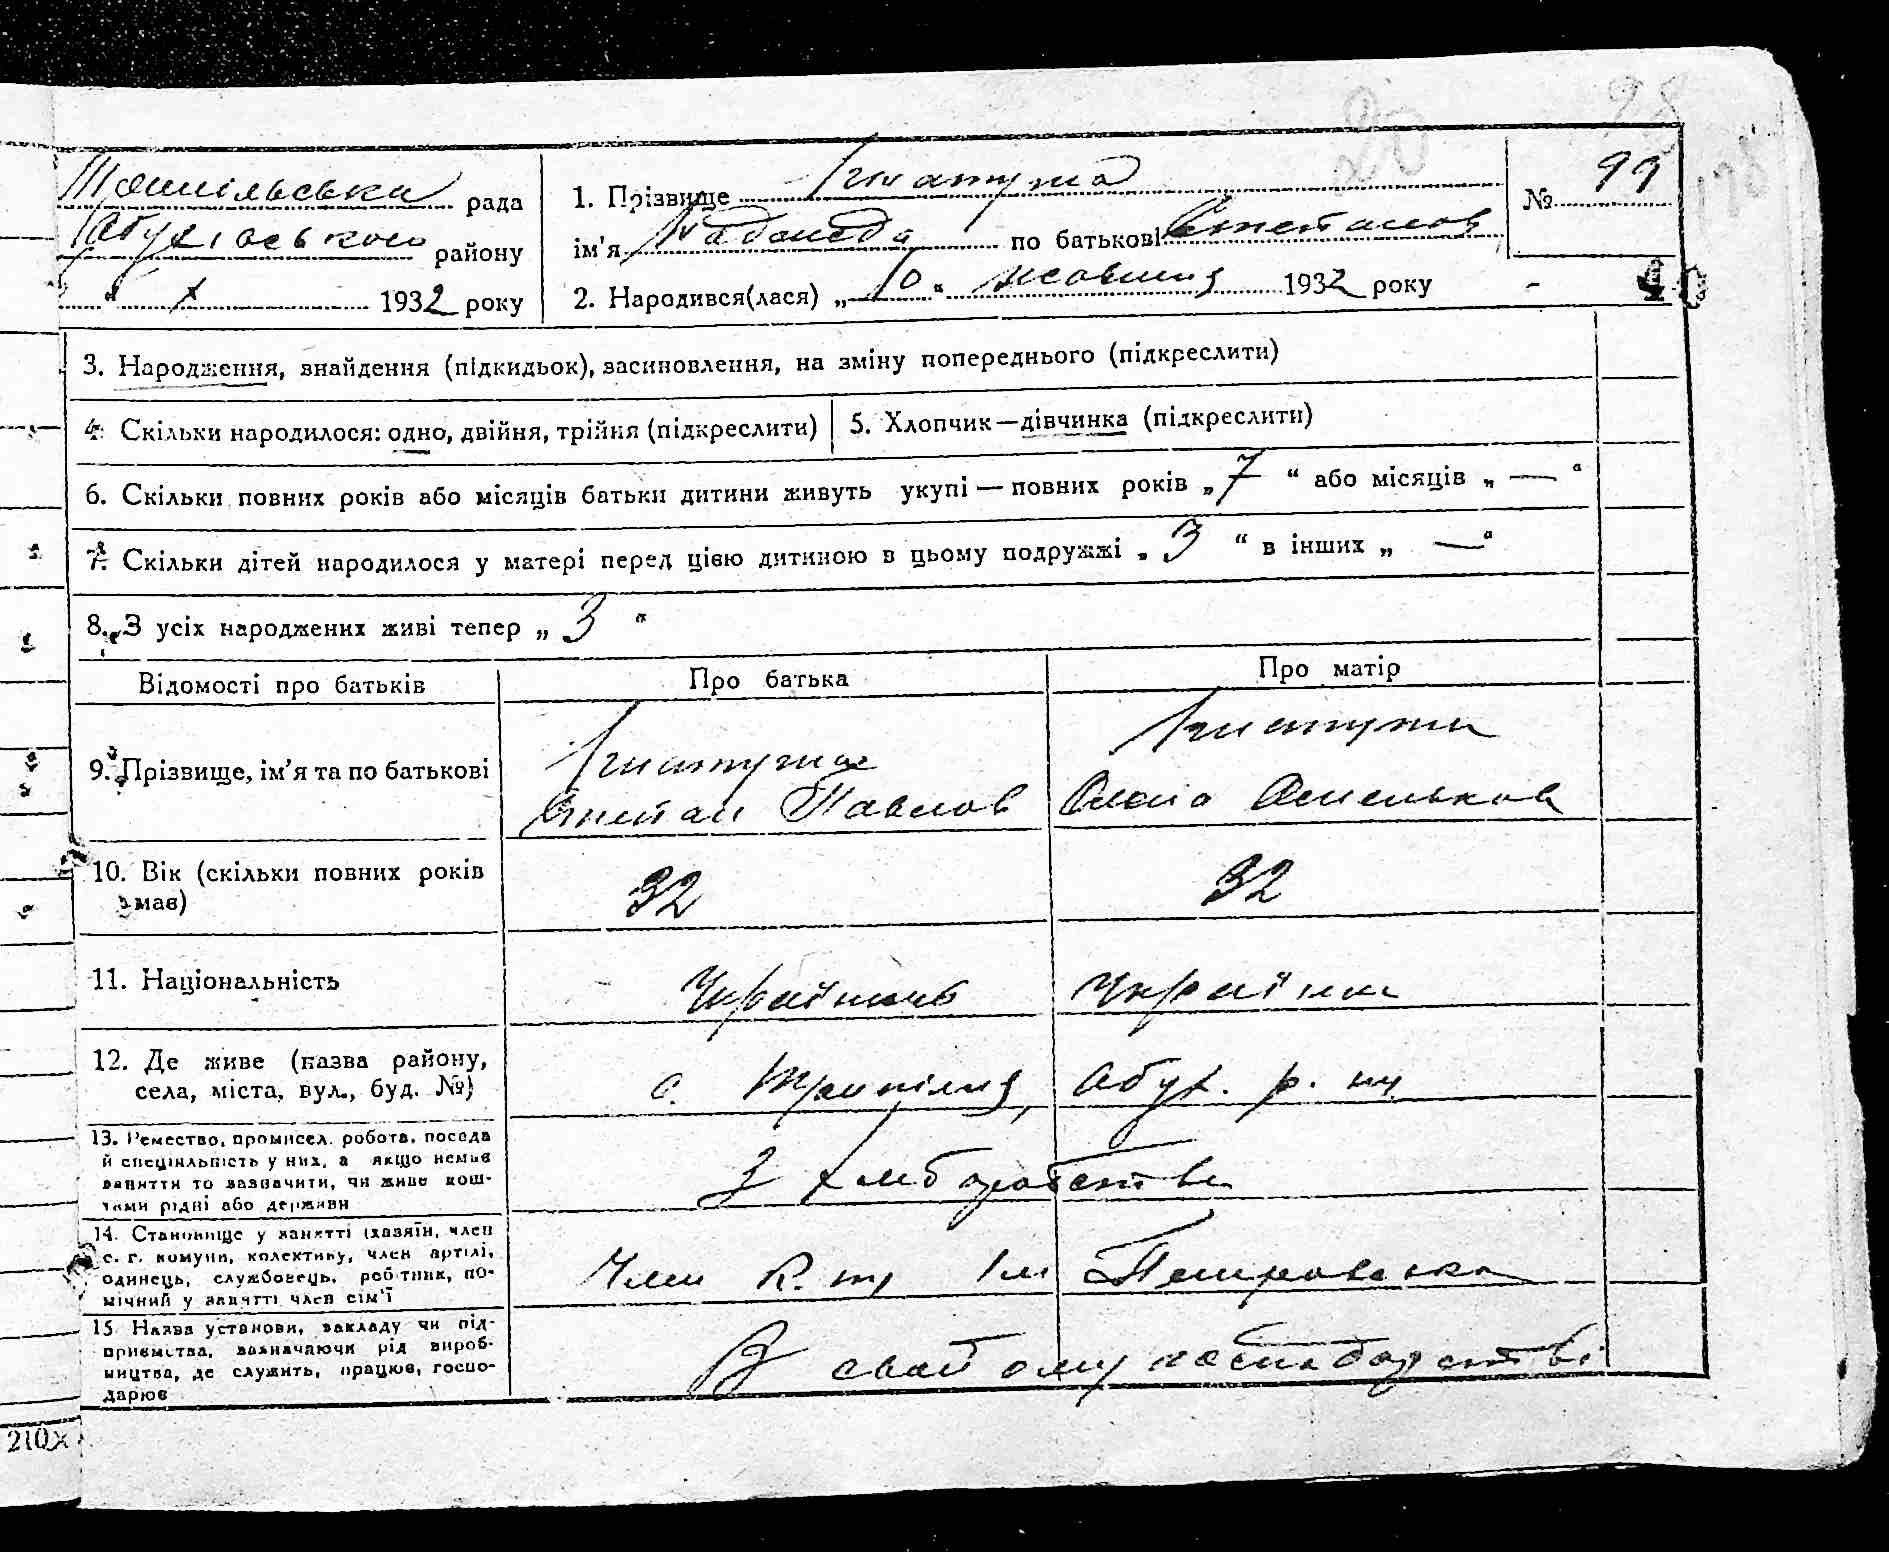 рада
району
X 1932 року
1. Прізвище
ім'я по батькові Степанов
2. Народився(лася) „10“ жовтня 1932 року
№ 99
3. Народження, знайдення (підкидьок), засиновлення, на зміну попереднього (підкреслити)
4. Скільки народилося: одно, двійня, трійня (підкреслити)
5. Хлопчик—дівчинка (підкреслити)
6. Скільки повних років або місяців батьки дитини живуть укупі — повних років „7“ або місяців „—“
7. Скільки дітей народилося у матері перед цією дитиною в цьому подружжі „3“ в інших „—“
8. З усіх народжених живі тепер „3“
Відомості про батьків
Про батька
Про матір
9. Прізвище, ім'я та по батькові
Степан Павлов
Омельков
10. Вік (скільки повних років
має)
32
32
11. Національність
Українець
Українка
12. Де живе (назва району,
села, міста, вул., буд. №)
с. Трипілля, Обух. р. ну
13. Ремество, промисел, робота, посада
й спеціяльність у них, а якщо немає
заняття то зазначити, чи живе кош-
тами рідні або держави
З хліборобства
14. Становище у занятті (хазяїн, член
с. г. комуни, колективу, член артілі,
одинець, службовець, робітник, по-
мічний у занятті член сім'ї
Член к. гу Ім Петровського
15. Назва установи, закладу чи під-
приємства, зазначаючи рід вироб-
ництва, де служить, працює, госпо-
дарює
В свойому господарстві
210